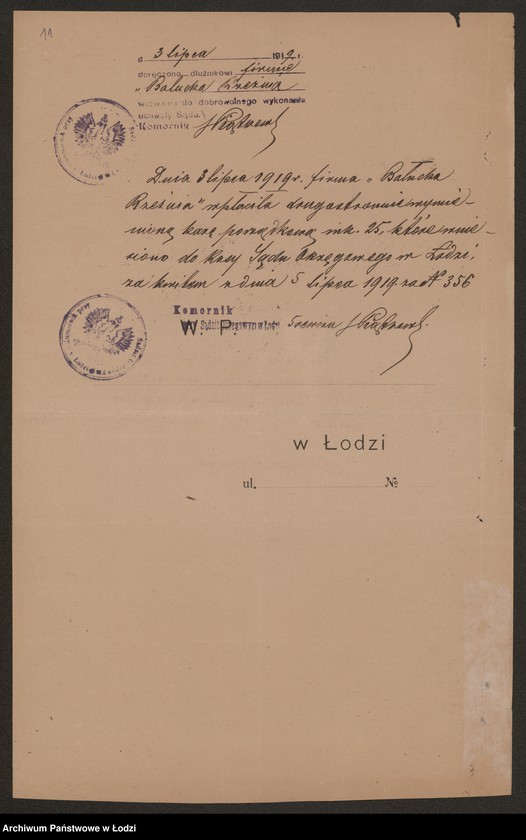 11
d 3 lipca 1919 r.
doręczono dłużnikowi firmie
„Bałucka Rzeźnia
wezwanie do dobrowolnego wykonania
uchwały Sądu.
Komornik
Dnia 3 lipca 1919 r. firma „Bałucka
Rzeźnia" wpłaciła drugostronnie wymie-
nioną karę porządkową mk. 25, które wnie-
siono do kasy Sądu Okręgowego w Łodzi,
za kwitem z dnia 5 lipca 1919 za № 356
Komornik
Sądzie Okręgowym w Łodzi
W. P.
w Łodzi
ul. №
Archiwum Państwowe w Łodzi